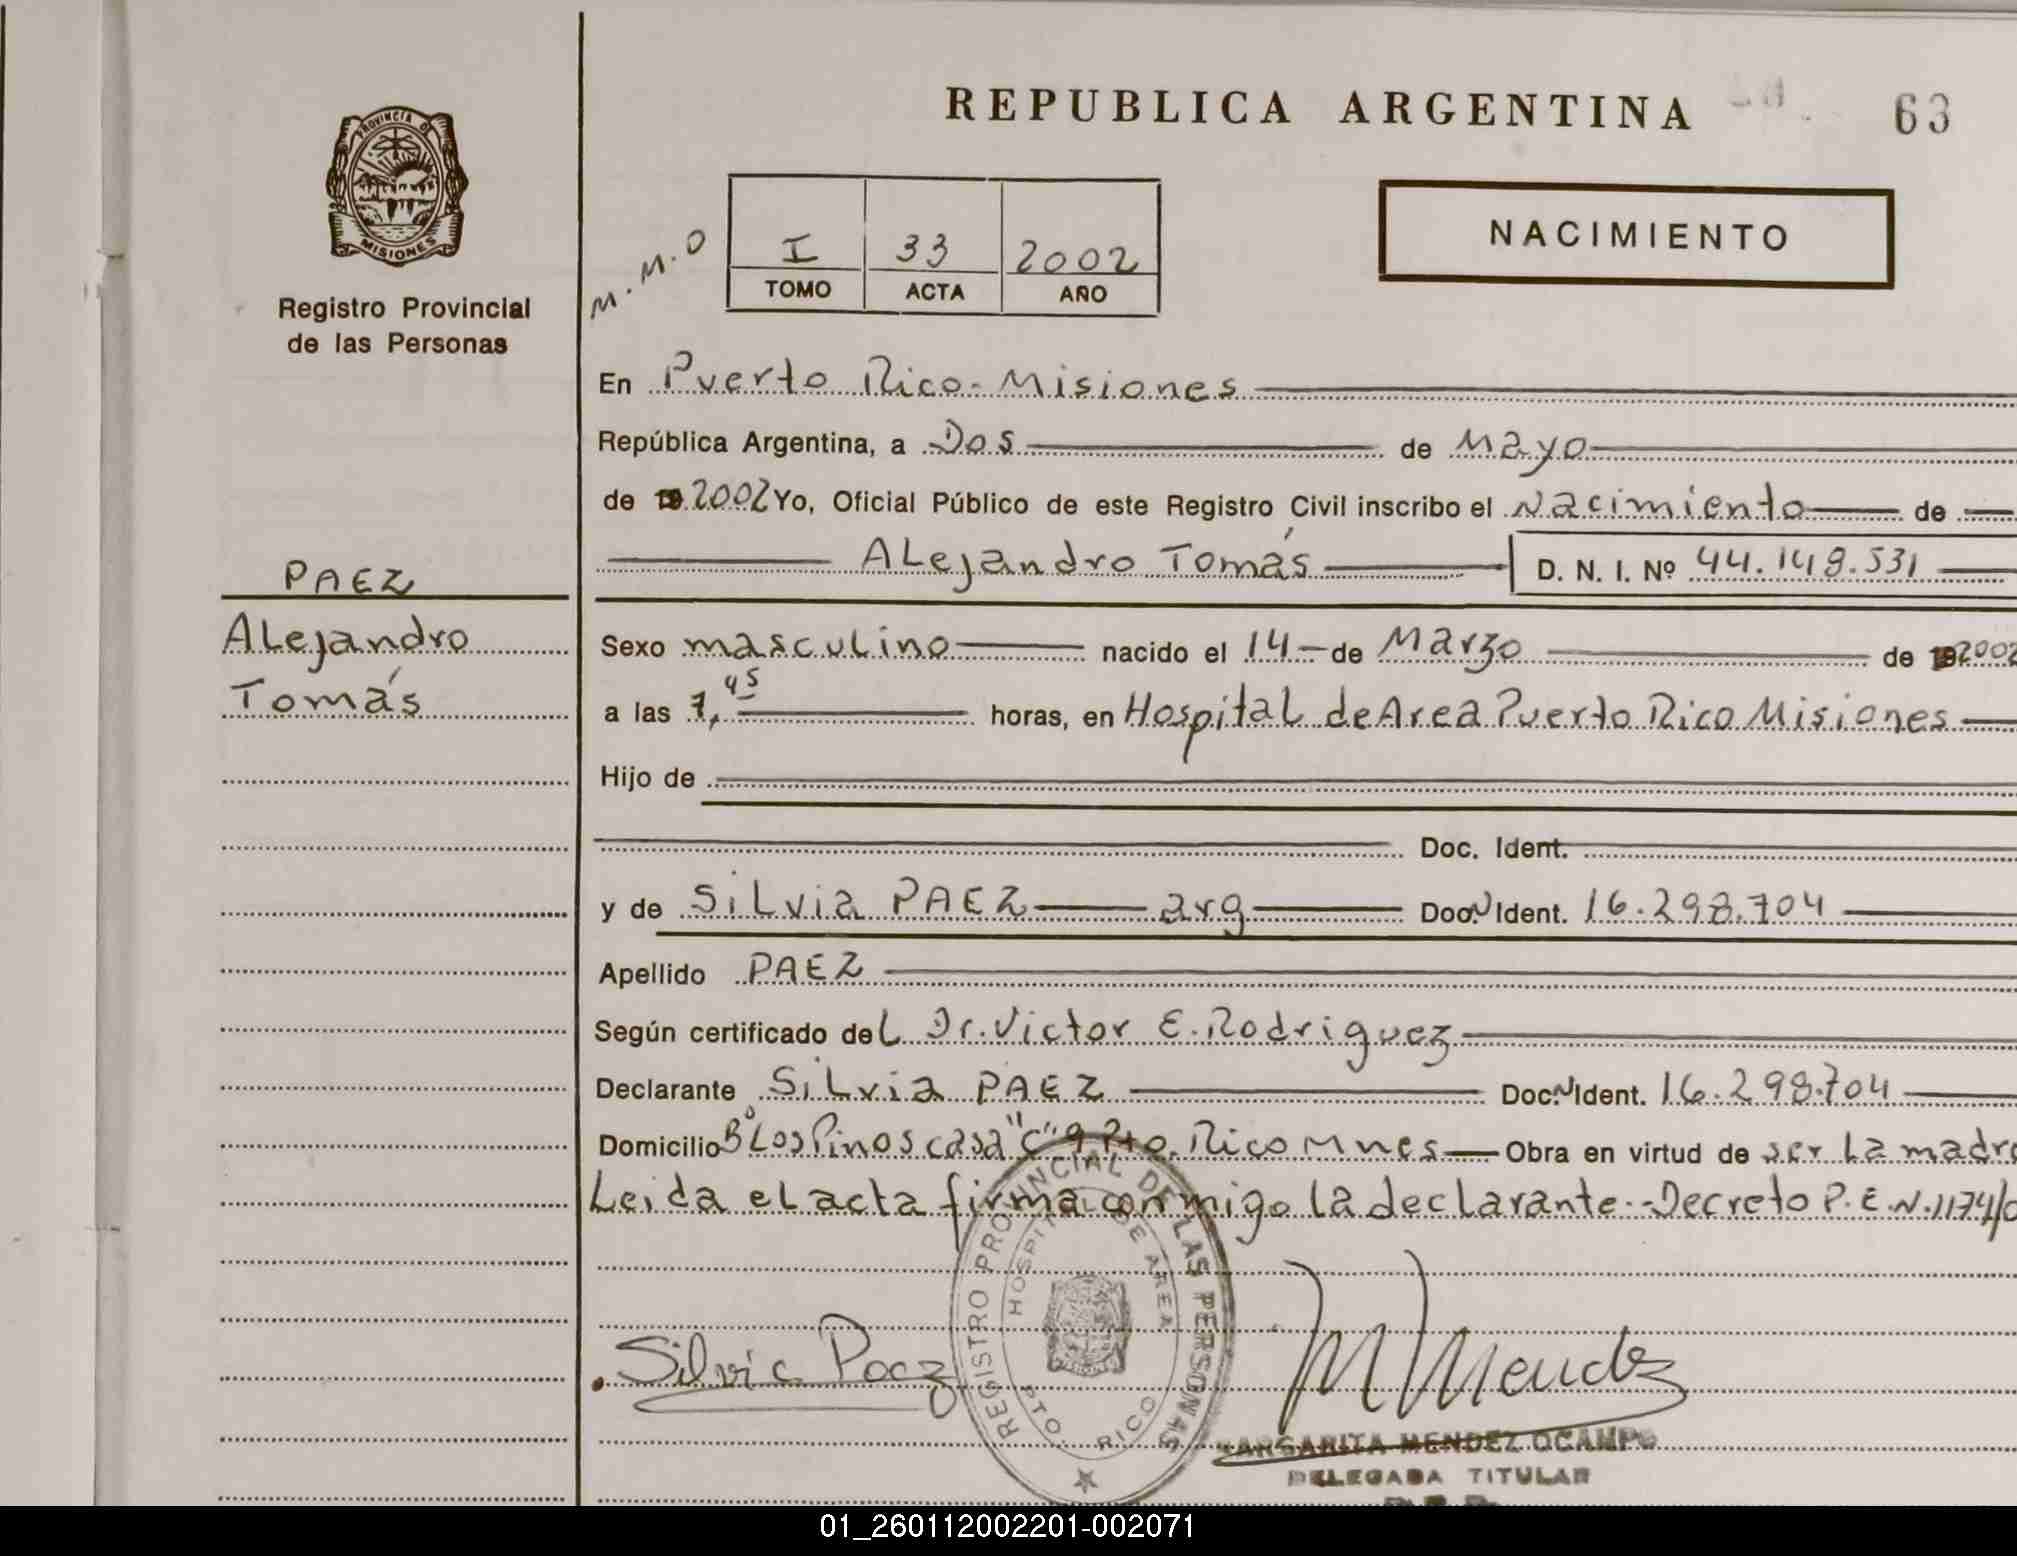 REPUBLICA ARGENTINA
63
PROVINCIA DE
MISIONES
Registro Provincial
de las Personas
M.M.O
I 33 2002
TOMO ACTA AÑO
NACIMIENTO
En Puerto Rico - Misiones
República Argentina, a Dos de Mayo
de 19 2002 Yo, Oficial Público de este Registro Civil inscribo el Nacimiento de
Alejandro Tomás D. N. I. Nº 44.148.531
PAEZ
Alejandro
Tomás
Sexo masculino nacido el 14 de Marzo de 19 2002
a las 7,45 horas, en Hospital de Area Puerto Rico Misiones
Hijo de
Doc. Ident.
y de Silvia PAEZ arg Doc. N Ident. 16.298.704
Apellido PAEZ
Según certificado del Dr. Victor E. Rodriguez
Declarante Silvia PAEZ Doc. N Ident. 16.298.704
Domicilio Bº Los Pinos casa "C" 9 Pto. Rico Mnes Obra en virtud de ser la madre
Leida el acta firma conmigo la declarante.- Decreto P.E.N. 1174/0
Silvia Paez
REGISTRO PROVINCIAL DE LAS PERSONAS
HOSPITAL DE AREA
PTO. RICO
M Mendez
MARGARITA MENDEZ OCAMPO
DELEGADA TITULAR
01_260112002201-002071